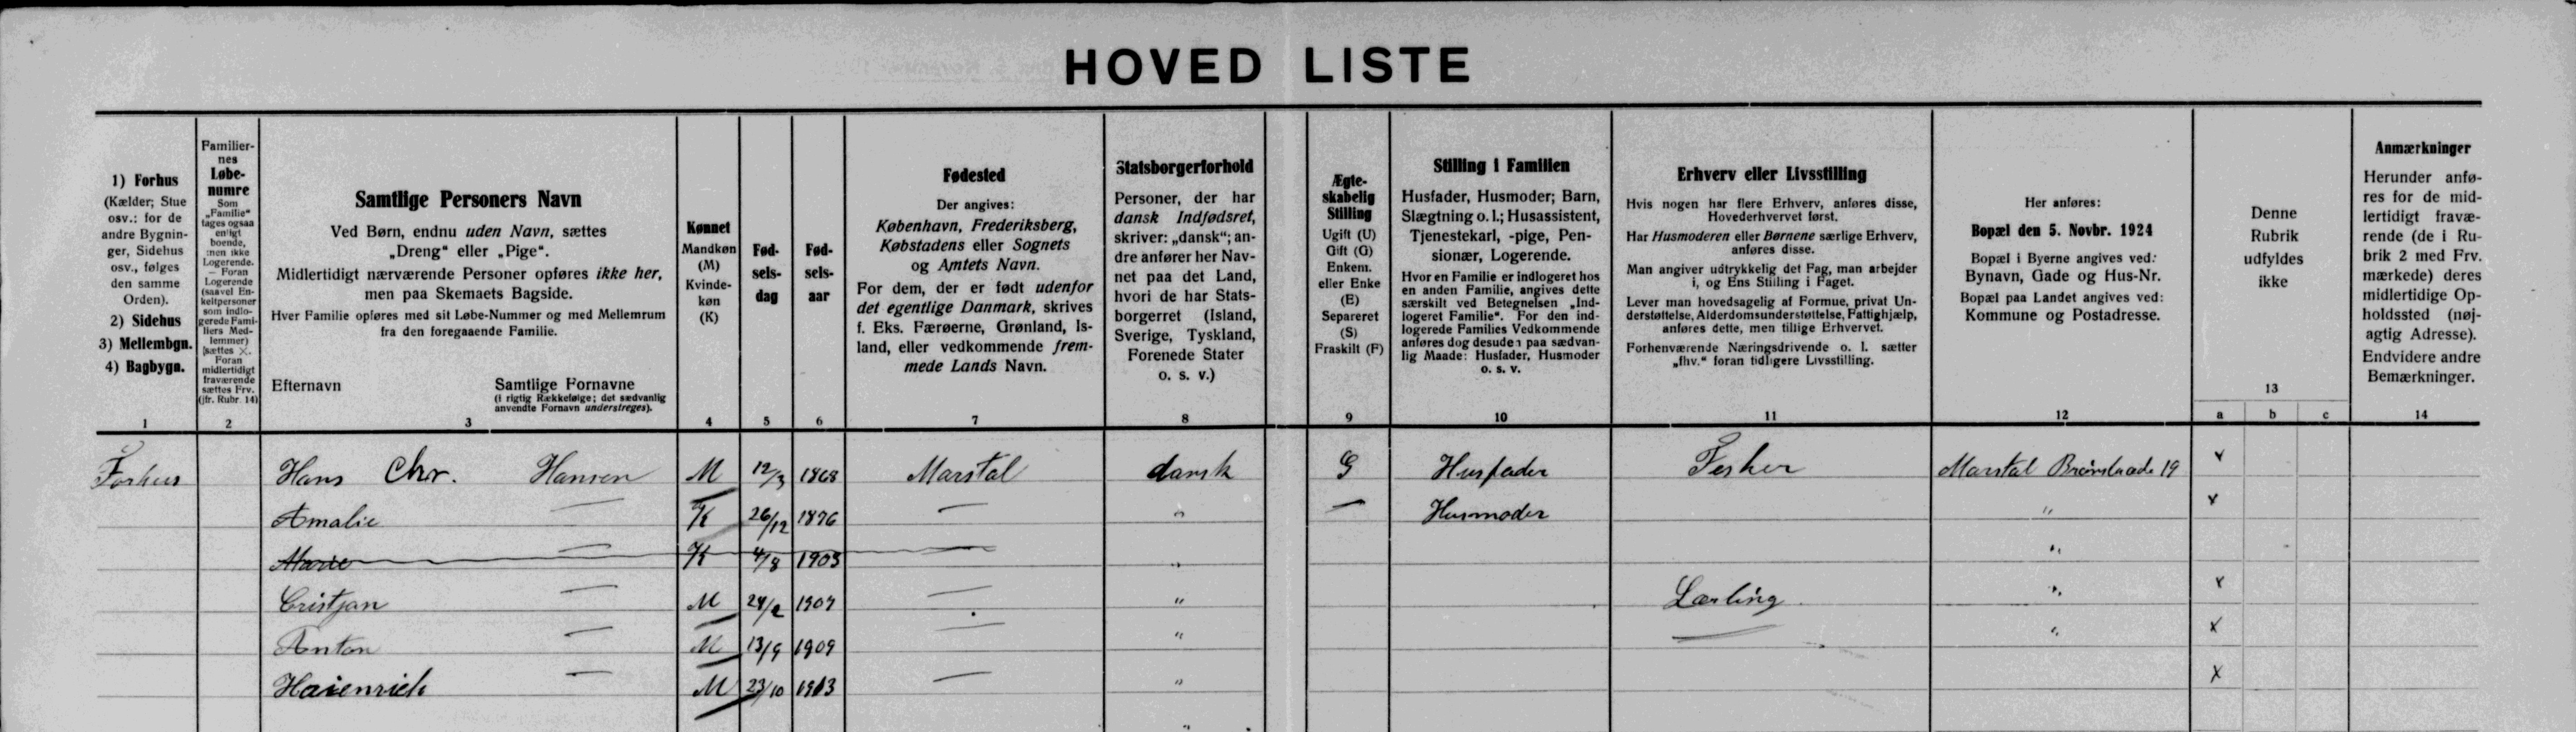 HOVED LISTE
1) Forhus
(Kælder; Stue
osv.: for de
andre Bygnin-
ger, Sidehus
osv., følges
den samme
Orden).
2) Sidehus
3) Mellembgn.
4) Bagbygn.
1
Familier-
nes
Løbe-
numre
Som
„Familie“
tages ogsaa
enligt
boende,
men ikke
Logerende.
— Foran
Logerende
(saavel En-
keltpersoner
som indlo-
gerede Fami-
liers Med-
lemmer)
sættes ×.
Foran
midlertidigt
fraværende
sættes Frv.
(jfr. Rubr. 14)
2
Samtlige Personers Navn
Ved Børn, endnu uden Navn, sættes
„Dreng“ eller „Pige“.
Midlertidigt nærværende Personer opføres ikke her,
men paa Skemaets Bagside.
Hver Familie opføres med sit Løbe-Nummer og med Mellemrum
fra den foregaaende Familie.
Efternavn
Samtlige Fornavne
(i rigtig Rækkefølge; det sædvanlig
anvendte Fornavn understreges).
3
Kønnet
Mandkøn
(M)
Kvinde-
køn
(K)
4
Fød-
sels-
dag
5
Fød-
sels-
aar
6
Fødested
Der angives:
København, Frederiksberg,
Købstadens eller Sognets
og Amtets Navn.
For dem, der er født udenfor
det egentlige Danmark, skrives
f. Eks. Færøerne, Grønland, Is-
land, eller vedkommende frem-
mede Lands Navn.
7
Statsborgerforhold
Personer, der har
dansk Indfødsret,
skriver: „dansk“; an-
dre anfører her Nav-
net paa det Land,
hvori de har Stats-
borgerret (Island,
Sverige, Tyskland,
Forenede Stater
o. s. v.)
8
Ægte-
skabelig
Stilling
Ugift (U)
Gift (G)
Enkem.
eller Enke
(E)
Separeret
(S)
Fraskilt (F)
9
Stilling i Familien
Husfader, Husmoder; Barn,
Slægtning o. l.; Husassistent,
Tjenestekarl, -pige, Pen-
sionær, Logerende.
Hvor en Familie er indlogeret hos
en anden Familie, angives dette
særskilt ved Betegnelsen „Ind-
logeret Familie“. For den ind-
logerede Families Vedkommende
anføres dog desuden paa sædvan-
lig Maade: Husfader, Husmoder
o. s. v.
10
Erhverv eller Livsstilling
Hvis nogen har flere Erhverv, anføres disse,
Hovederhvervet først.
Har Husmoderen eller Børnene særlige Erhverv,
anføres disse.
Man angiver udtrykkelig det Fag, man arbejder
i, og Ens Stilling i Faget.
Lever man hovedsagelig af Formue, privat Un-
derstøttelse, Alderdomsunderstøttelse, Fattighjælp,
anføres dette, men tillige Erhvervet.
Forhenværende Næringsdrivende o. l. sætter
„fhv.“ foran tidligere Livsstilling.
11
Her anføres:
Bopæl den 5. Novbr. 1924
Bopæl i Byerne angives ved:
Bynavn, Gade og Hus-Nr.
Bopæl paa Landet angives ved:
Kommune og Postadresse.
12
Denne
Rubrik
udfyldes
ikke
13
a b c
Anmærkninger
Herunder anfø-
res for de mid-
lertidigt fravæ-
rende (de i Ru-
brik 2 med Frv.
mærkede) deres
midlertidige Op-
holdssted (nøj-
agtig Adresse).
Endvidere andre
Bemærkninger.
14
Forhus Hans Chr. Hansen M 12/3 1868 Marstal dansk G Husfader Fisker Marstal 19 x
Amalie — K 26/12 1876 — " — Husmoder " x
Marie — K 4/8 1903 — " "
Cristjan — M 1907 — " Lærling " x
Anton — M 13/9 1909 — " — " x
Haienrich — M 23/10 1913 — " x
"